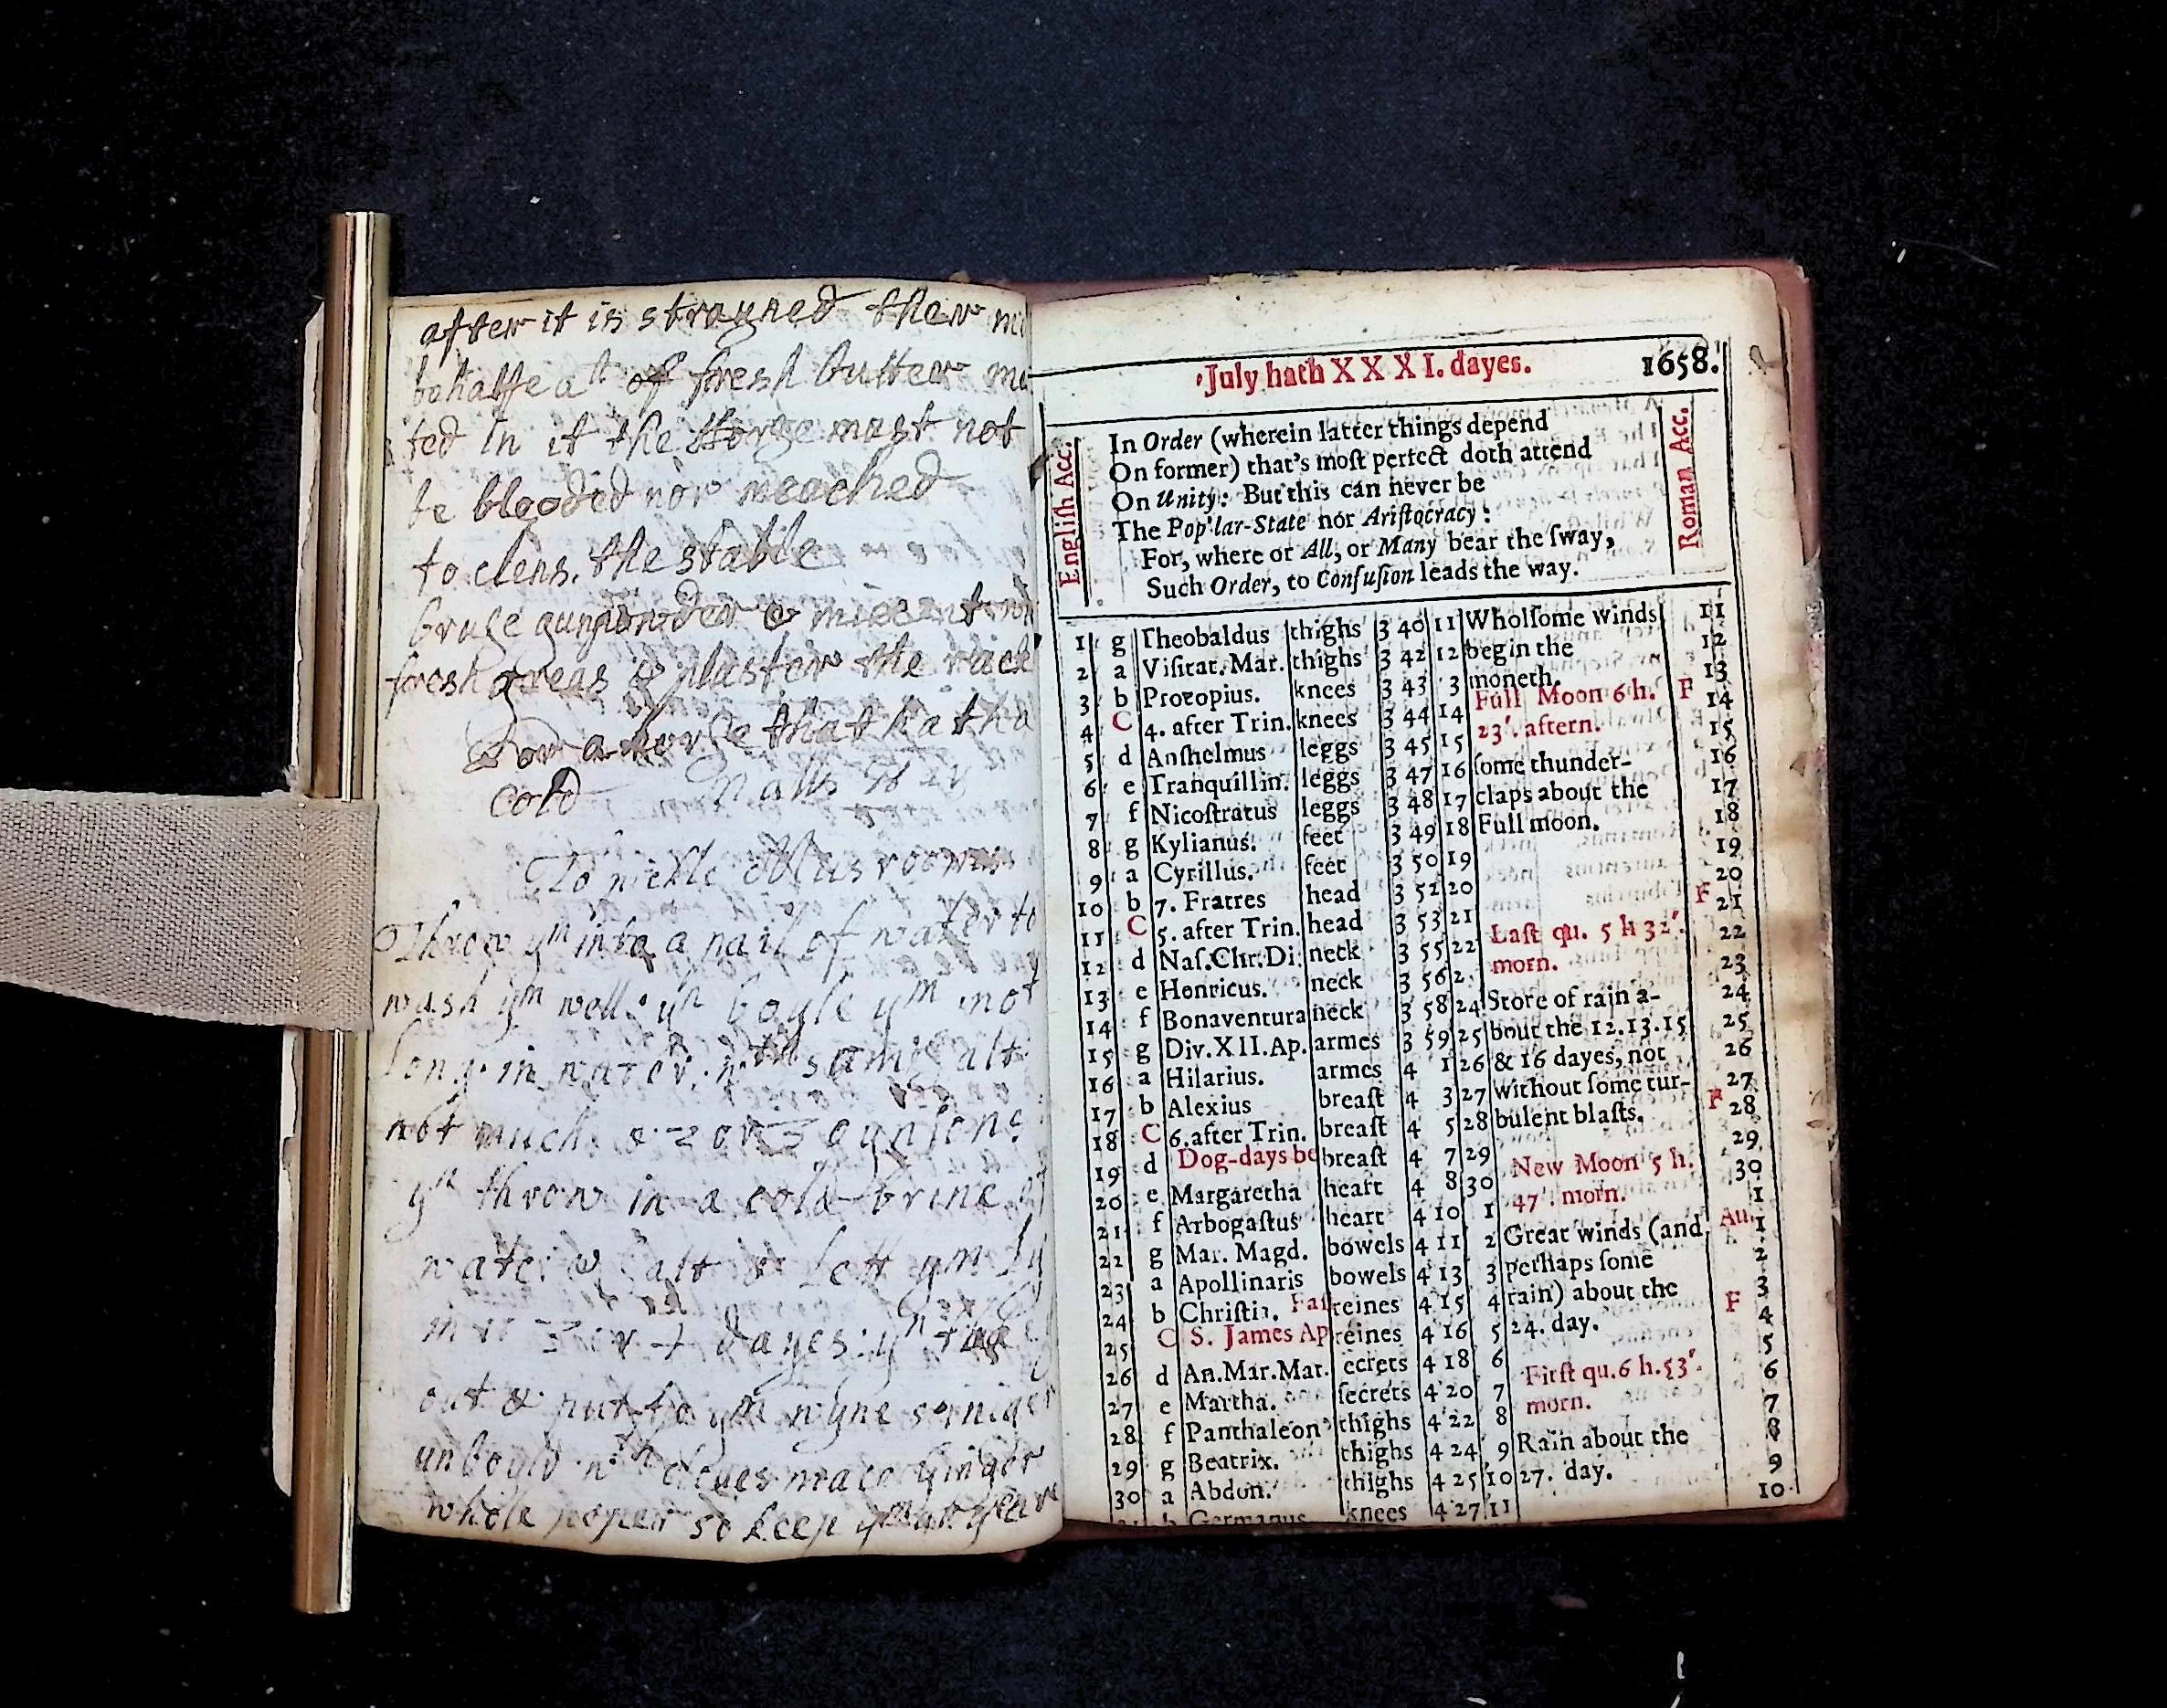 after it is strayned then
behalfe a lt of fresh butter
ted in it the Horse must not
be blooded nor
to clens. the stable
bruse gunpowder &
fresh greas & plaster the rack
For a horse that hath a
cold
To pickle Musroomes
Throw ym into a pail of water to
wash ym well: yn boyle ym not
long in water: wth some salt
not much & 2 or 3 oynions
yn throw in a cold brine of
water & salt & lett ym ly
in it 3 or 4 dayes: yn take
out & put to ym wyne viniger
unboyld wth cloves mace ginger
whole peper so keep
July hath XXXI. dayes. 1658.
English Acc.
In Order (wherein latter things depend
On former) that's most perfect doth attend
On Unity: But this can never be
The Pop'lar-State nor Aristocracy:
For, where or All, or Many bear the sway,
Such Order, to Confusion leads the way.
Roman Acc.
1 g Theobaldus thighs 3 40 11 Wholsome winds 11
2 a Visitat. Mar. thighs 3 42 12 begin the 12
3 b Procopius. knees 3 43 3 moneth. 13
4 C 4. after Trin. knees 3 44 14 Full Moon 6 h. F 14
5 d Anshelmus leggs 3 45 15 23'. aftern. 15
6 e Tranquillin. leggs 3 47 16 some thunder- 16
7 f Nicostratus leggs 3 48 17 claps about the 17
8 g Kylianus. feet 3 49 18 Full moon. 18
9 a Cyrillus. feet 3 50 19 19
10 b 7. Fratres head 3 52 20 20
11 C 5. after Trin. head 3 53 21 F 21
12 d Nas. Chr. Di. neck 3 55 22 Last qu. 5 h 32'. 22
13 e Henricus. neck 3 56 2 morn. 23
14 f Bonaventura neck 3 58 24 Store of rain a- 24
15 g Div. XII. Ap. armes 3 59 25 bout the 12. 13. 15 25
16 a Hilarius. armes 4 1 26 & 16 dayes, not 26
17 b Alexius breast 4 3 27 without some tur- 27
18 C 6. after Trin. breast 4 5 28 bulent blasts. F 28
19 d Dog-days be breast 4 7 29 29
20 e Margaretha heart 4 8 30 New Moon 5 h. 30
21 f Arbogastus heart 4 10 1 47'. morn. 1
22 g Mar. Magd. bowels 4 11 2 Great winds (and Au. 1
23 a Apollinaris bowels 4 13 3 perhaps some 2
24 b Christia. Fast reines 4 15 4 rain) about the 3
25 C S. James Ap reines 4 16 5 24. day. F 4
26 d An. Mar. Mat. ecrets 4 18 6 5
27 e Martha. secrets 4 20 7 First qu. 6 h. 53'. 6
28 f Panthaleon thighs 4 22 8 morn. 7
29 g Beatrix. thighs 4 24 9 Rain about the 8
30 a Abdon. thighs 4 25 10 27. day. 9
b Germanus knees 4 27 11 10